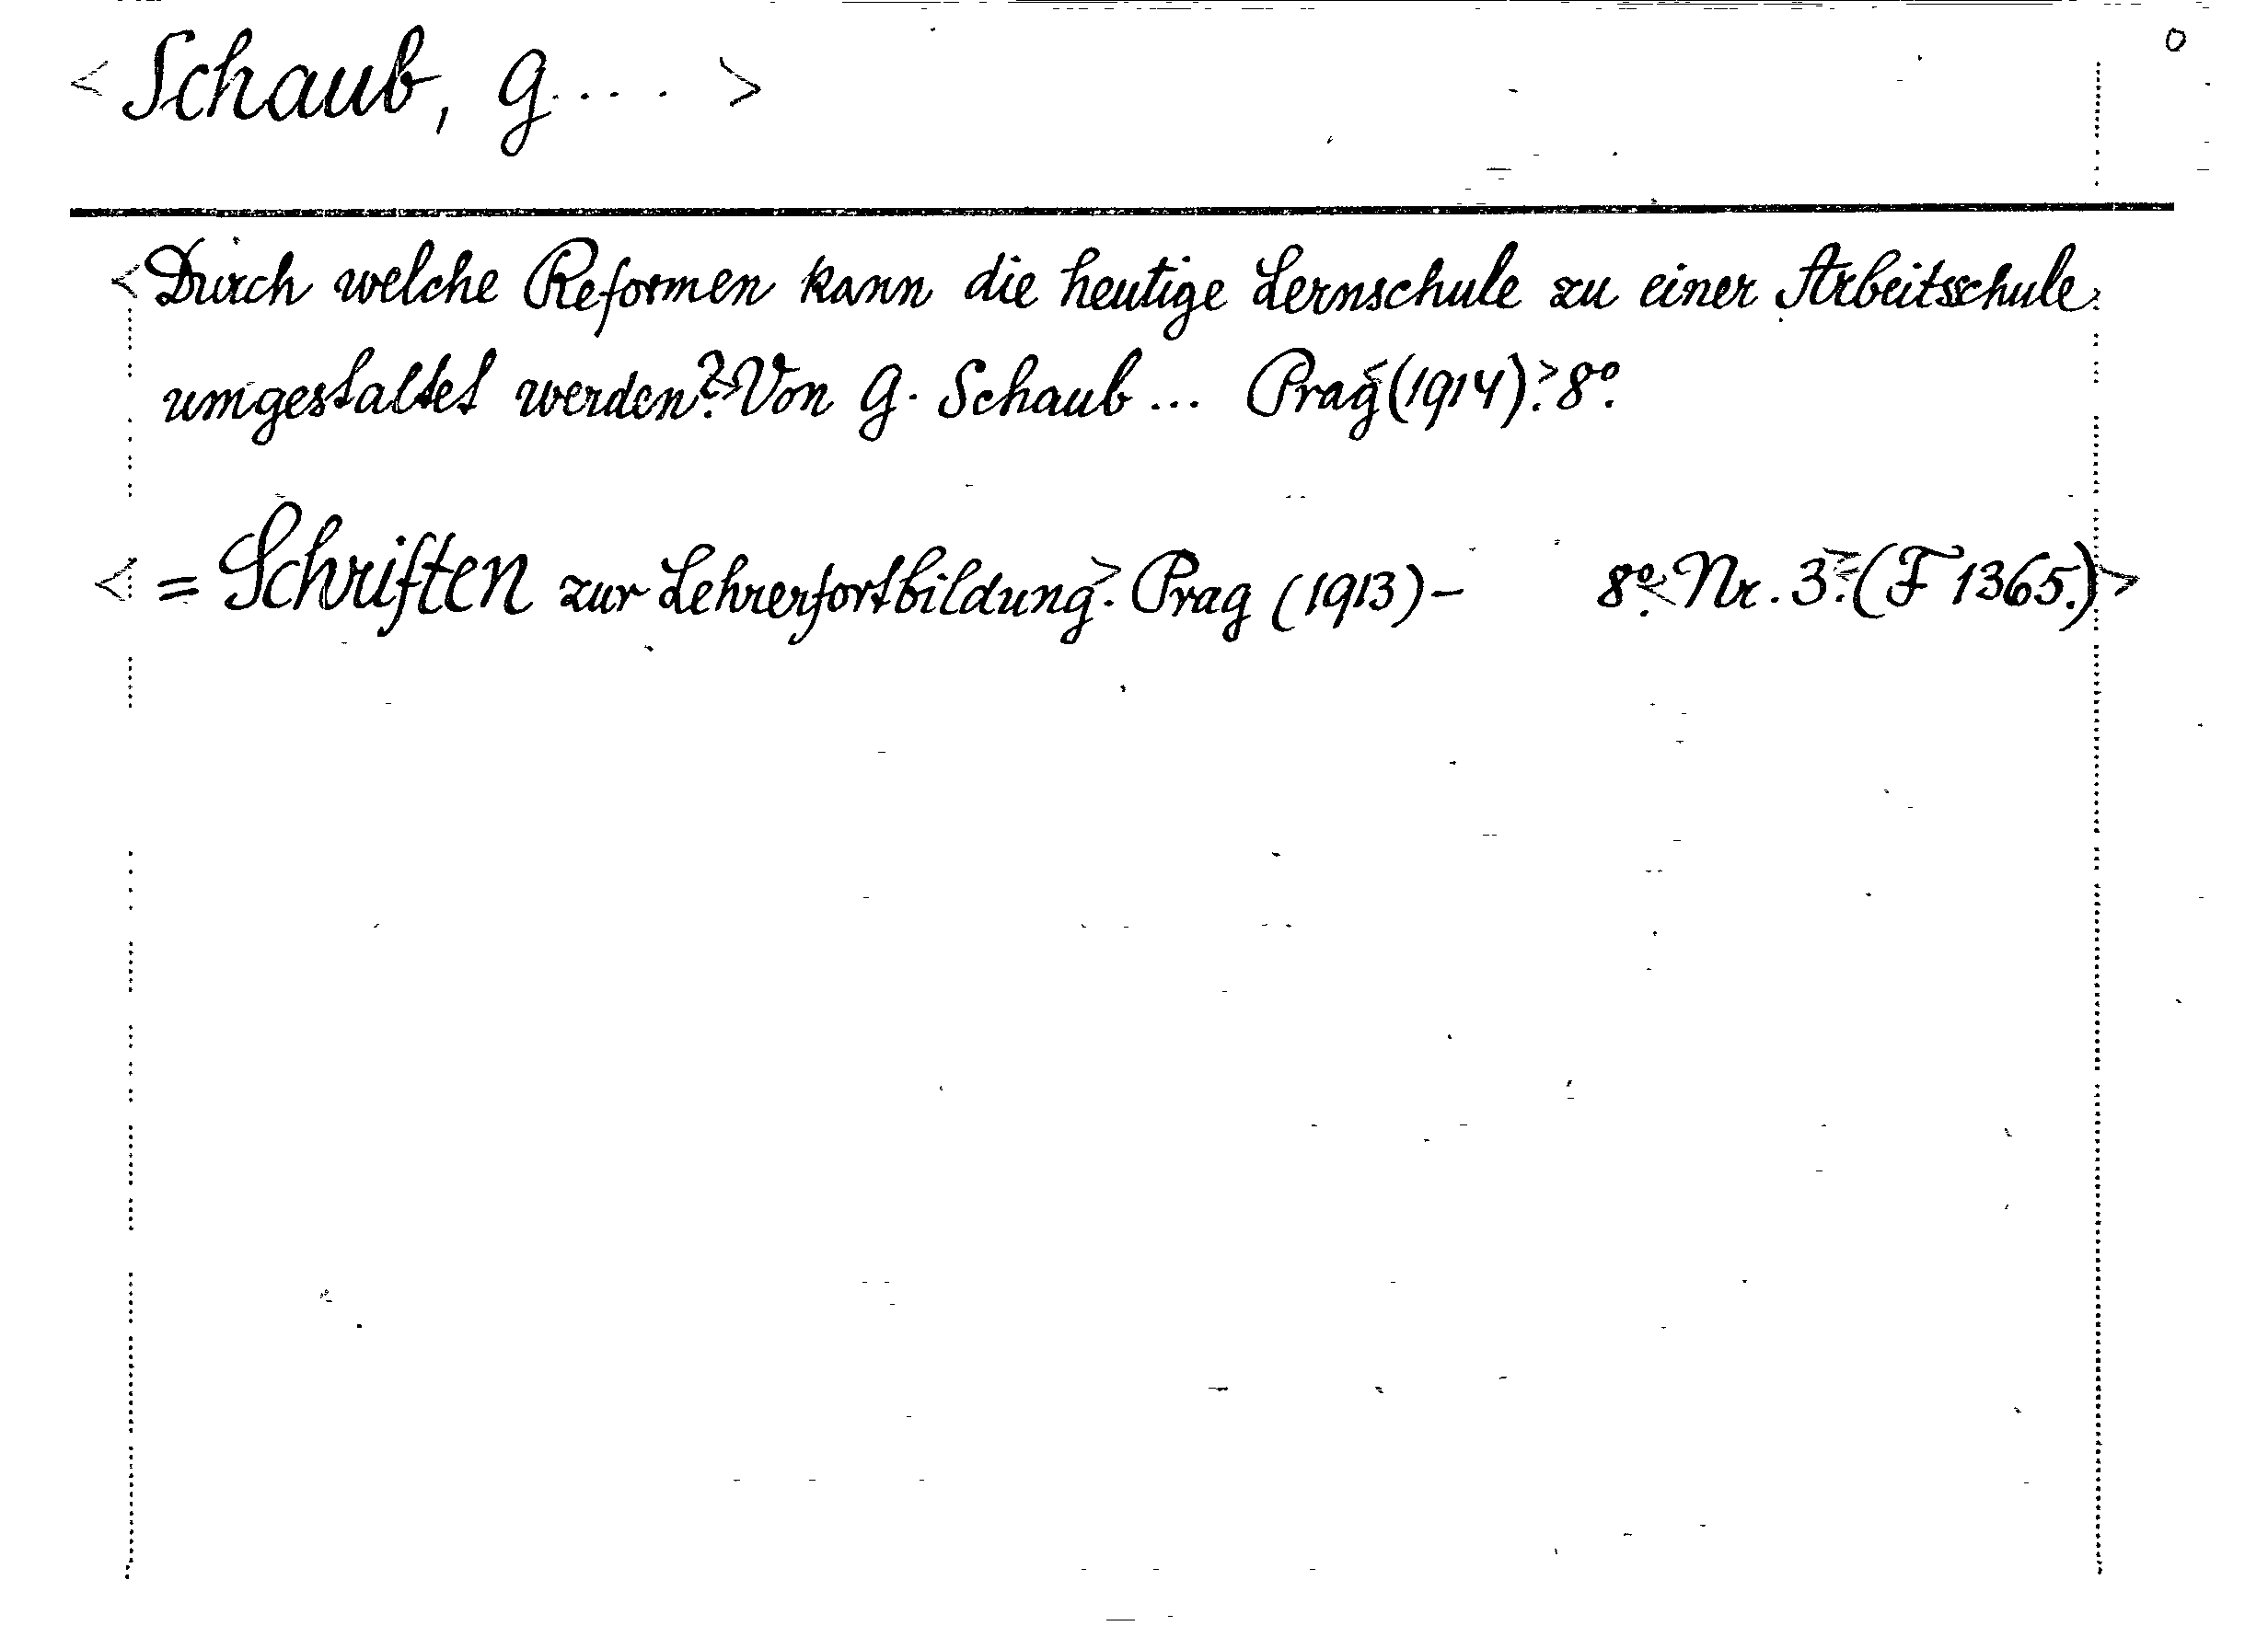 < Schaub, G.... >
o
<Durch welche Reformen kann die heutige Lernschule zu einer Arbeitsschule
umgestaltet werden?> Von G. Schaub ... Prag <(1914).> 8°.
< = Schriften zur Lehrerfortbildung>. Prag (1913) - 8°. <Nr. 3.> = (F 1365.)>